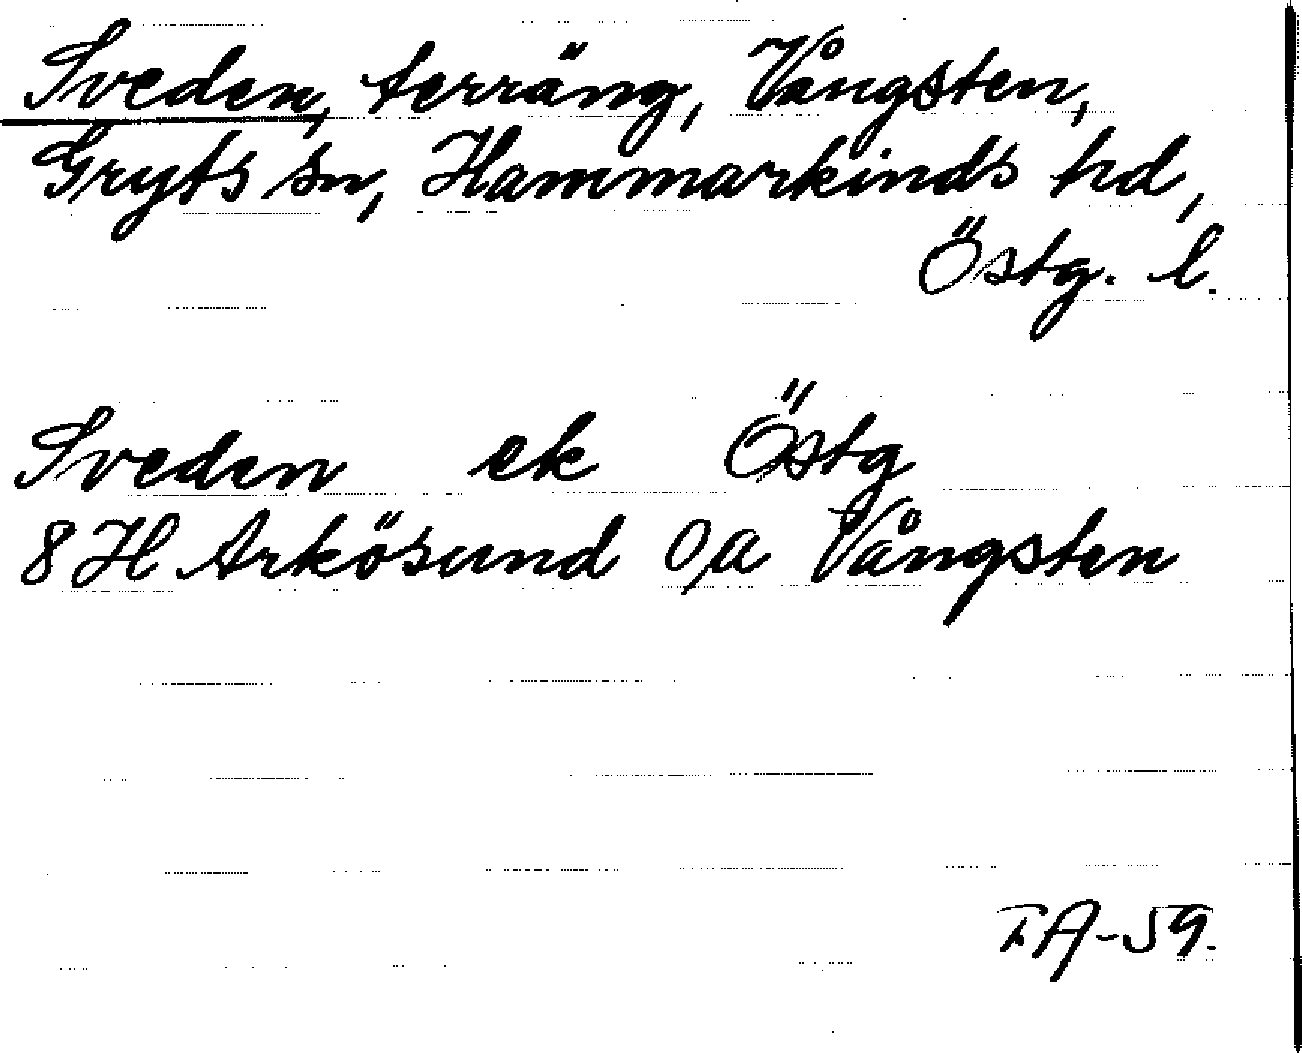 Sveden, terräng, Vångsten,
Gryts sn, Hammarkinds hd,
Östg. l.
Sveden ek Östg
8 H Arkösund o,a Vångsten
TA-59.